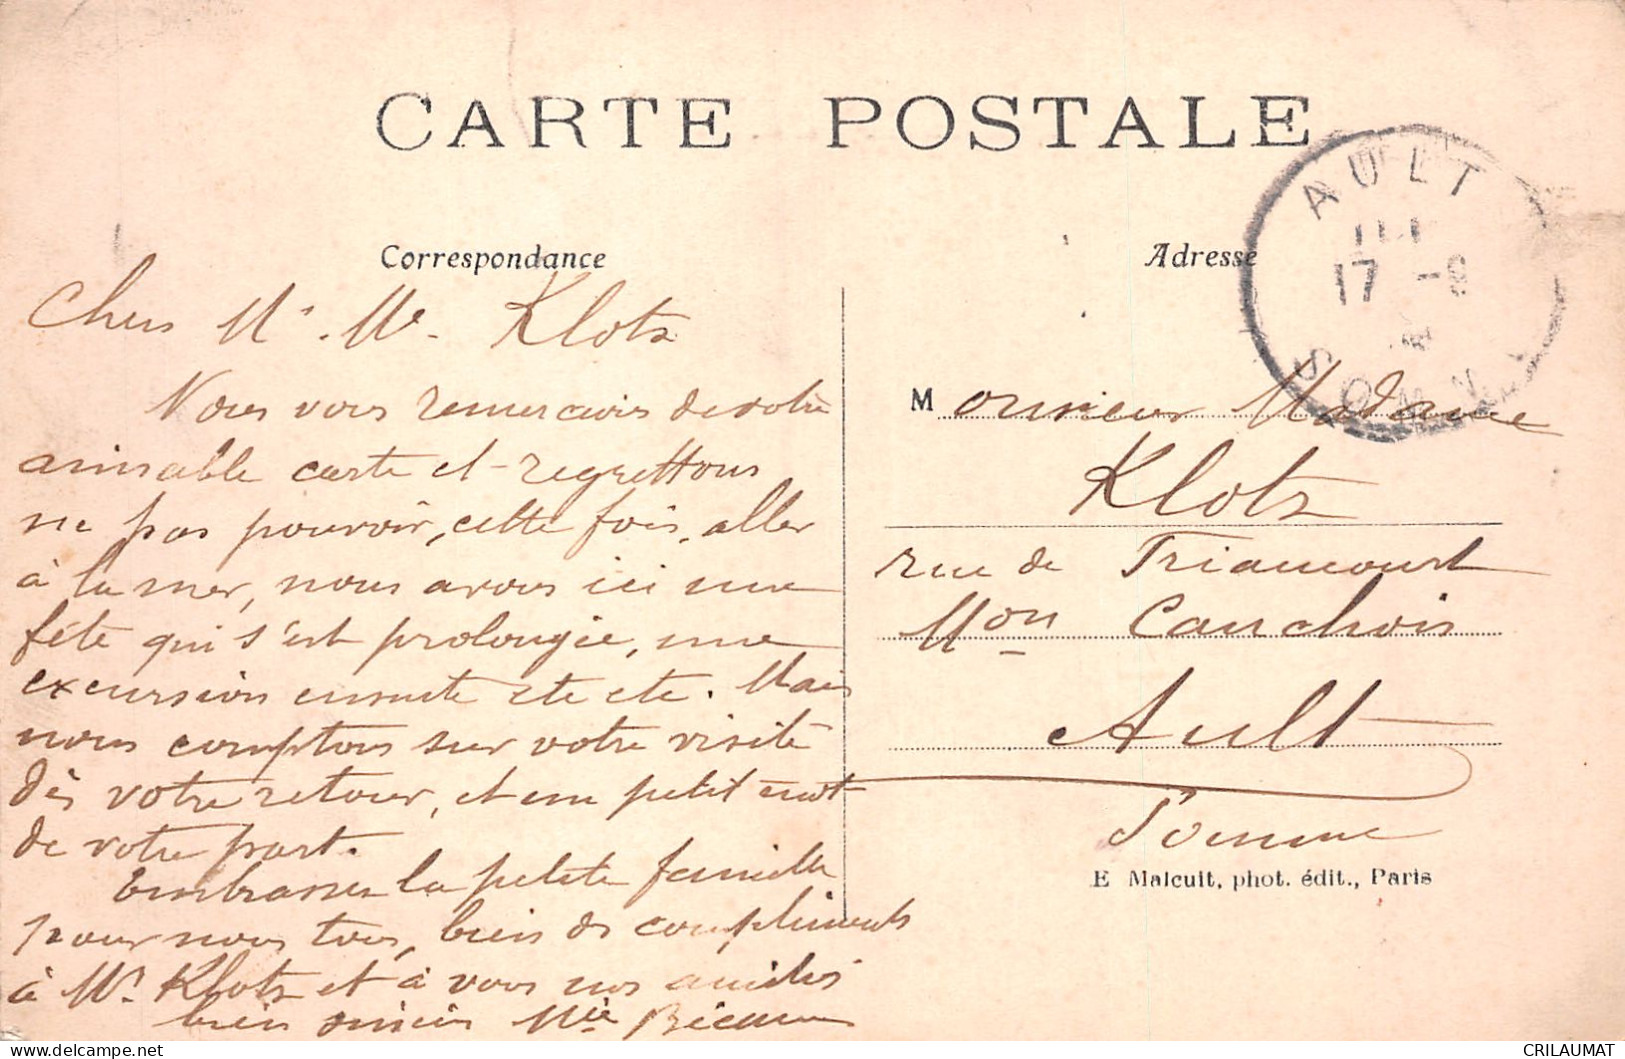 CARTE POSTALE
Correspondance
Adresse
AULT
17 -8
SOMME
Chers Mr. Me. Klotz
Nous vous remercions de votre
aimable carte et regrettons
ne pas pouvoir, cette fois, aller
à la mer, nous avons ici une
fête qui s'est prolongée, une
excursion ensuite etc etc. Mais
nous comptons sur votre visite
dès votre retour, et un petit mot
de votre part.
Embrassez la petite famille
pour nous tous, bien des compliments
à Mr. Klotz et à vous nos amitiés
bien sincères Mie
Monsieur Madame
Klotz
rue de Friaucourt
Mon Cauchois
Ault
Somme
E Malcuit, phot. édit., Paris
CRILAUMAT